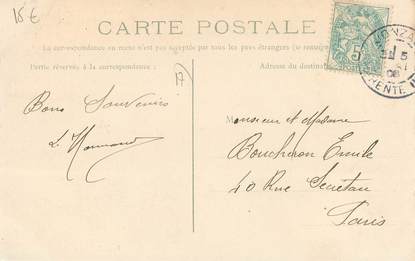 15€
CARTE POSTALE
La correspondance au recto n'est pas acceptée par tous les pays étrangers (se renseigner
Partie réservée à la correspondance
Adresse du destinat
17
5
JONZA
5
08
RENTE
Bons Souvenirs
Monsieur et Madame
Boucheron Emile
40 Rue Secretan
Paris